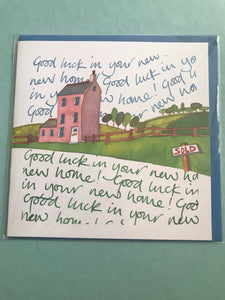 Good luck in your new
new home! Good luck in yo
in your new home! Good lu
Good new ho
SOLD
Good luck in your new ho
new home! Good luck in
in your new home! Good
Good luck in your new
new home! Good luck in your new